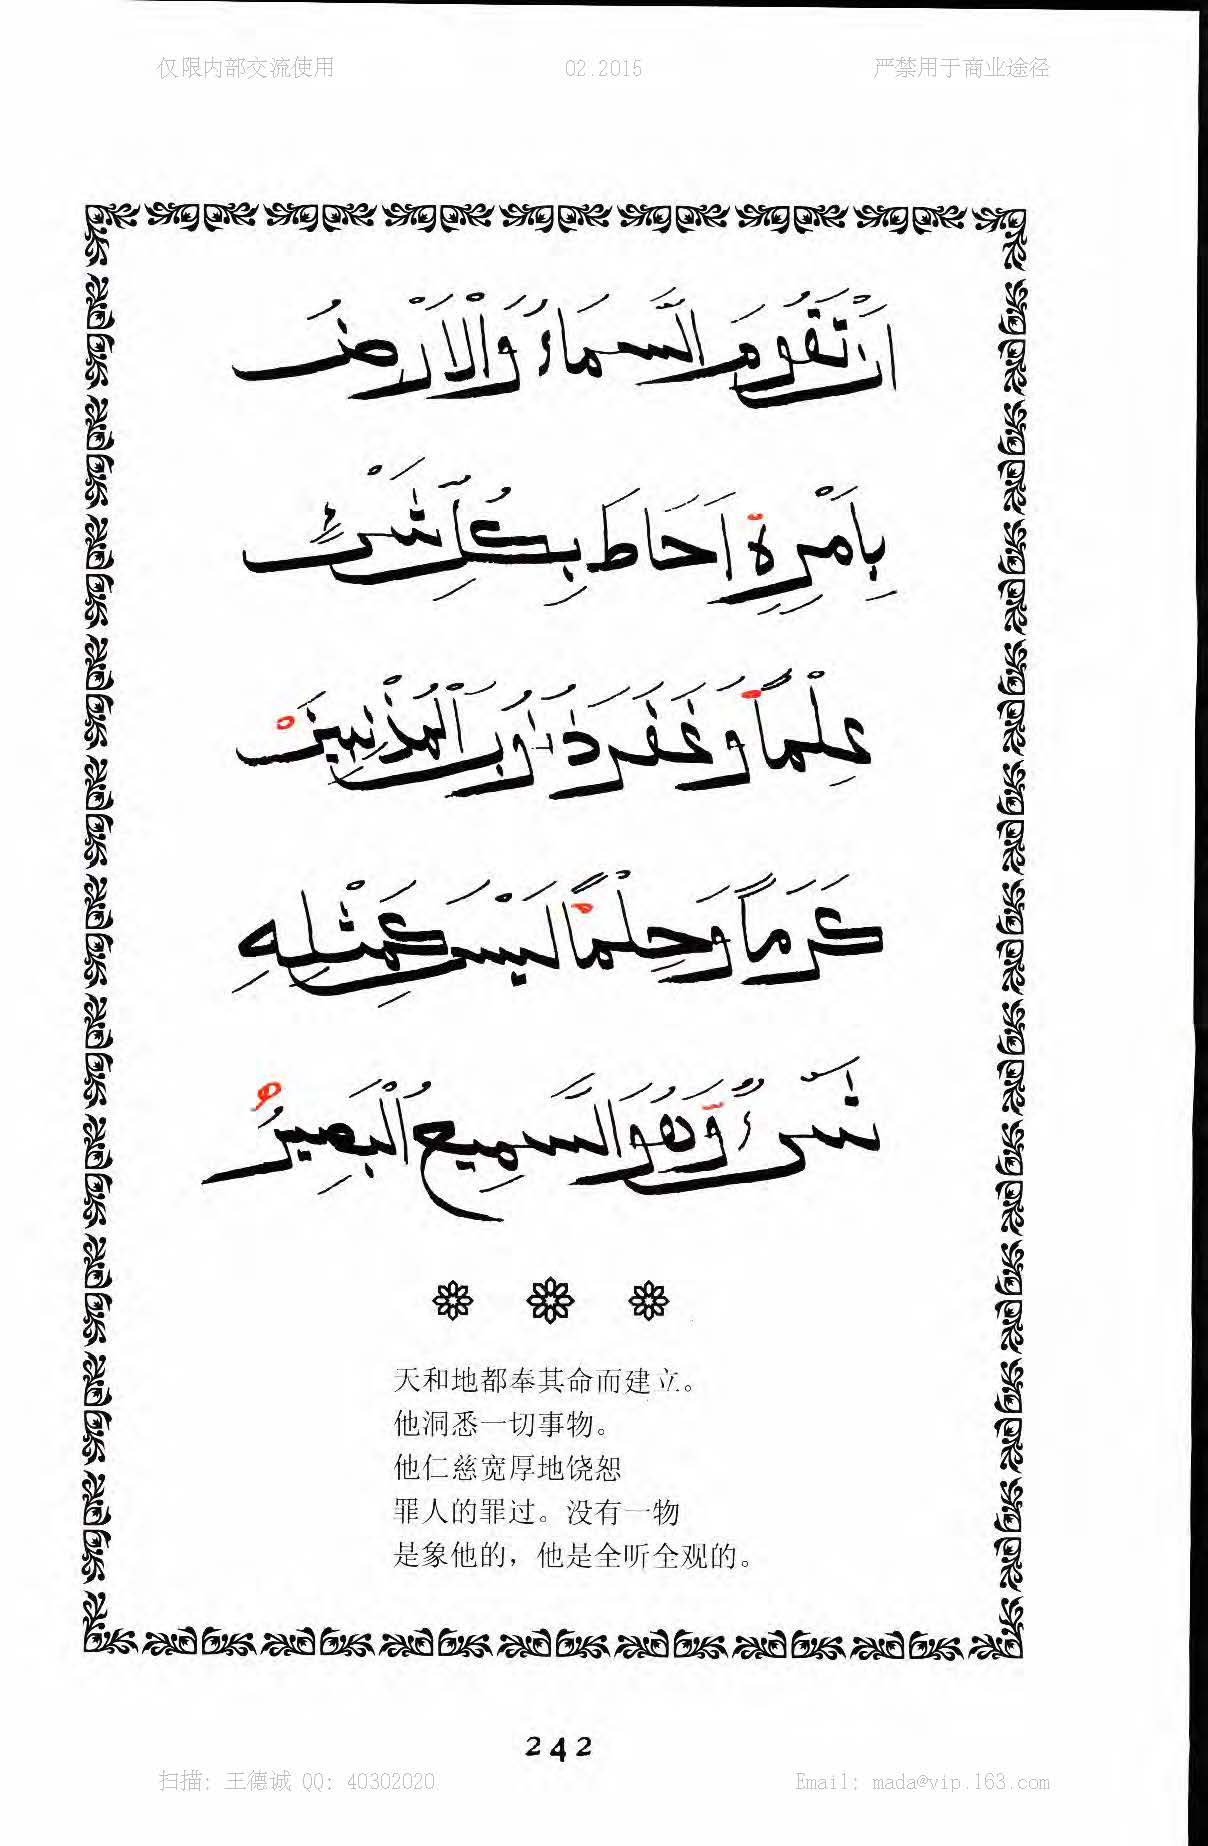 仅限内部交流使用 02.2015 严禁用于商业途径
اَنْ تَقُومَ السَّمَاءُ وَالْاَرْضُ
بِاَمْرِهٖ اَحَاطَ بِكُلِّ شَيْءٍ
عِلْمًا وَغَفَرَ ذُنُوبَ الْمُذْنِبِينَ
كَرَمًا وَحِلْمًا لَيْسَ كَمِثْلِهِ
شَيْءٌ وَهُوَ السَّمِيعُ الْبَصِيرُ
天和地都奉其命而建立。
他洞悉一切事物。
他仁慈宽厚地饶恕
罪人的罪过。没有一物
是象他的，他是全听全观的。
242
扫描: 王德诚 QQ: 40302020 Email: mada@vip.163.com